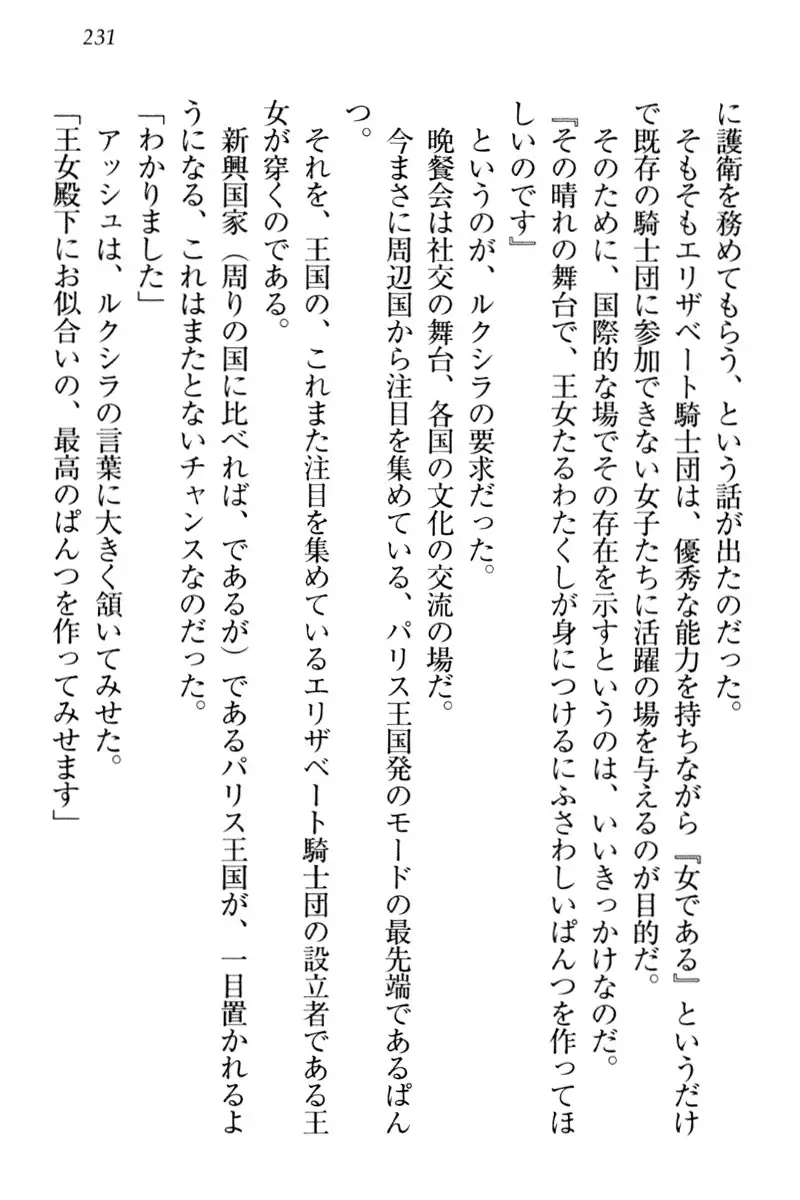 231
に護衛を務めてもらう、という話が出たのだった。
そもそもエリザベート騎士団は、優秀な能力を持ちながら『女である』というだけ
で既存の騎士団に参加できない女子たちに活躍の場を与えるのが目的だ。
そのために、国際的な場でその存在を示すというのは、いいきっかけなのだ。
『その晴れの舞台で、王女たるわたくしが身につけるにふさわしいぱんつを作ってほ
しいのです』
というのが、ルクシラの要求だった。
晩餐会は社交の舞台、各国の文化の交流の場だ。
今まさに周辺国から注目を集めている、パリス王国発のモードの最先端であるぱん
つ。
それを、王国の、これまた注目を集めているエリザベート騎士団の設立者である王
女が穿くのである。
新興国家（周りの国に比べれば、であるが）であるパリス王国が、一目置かれるよ
うになる、これはまたとないチャンスなのだった。
「わかりました」
アッシュは、ルクシラの言葉に大きく頷いてみせた。
「王女殿下にお似合いの、最高のぱんつを作ってみせます」